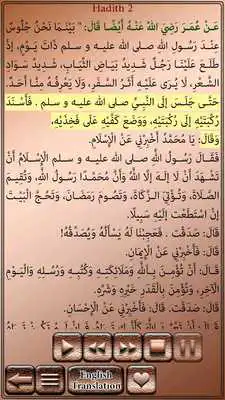 Hadith 2
عَنْ عُمَرَ رَضِيَ اللهُ عَنْهُ أَيْضًا قَالَ: " بَيْنَمَا نَحْنُ جُلُوسٌ
عِنْدَ رَسُولِ اللهِ صلى الله عليه و سلم ذَاتَ يَوْمٍ، إذْ
طَلَعَ عَلَيْنَا رَجُلٌ شَدِيدُ بَيَاضِ الثِّيَابِ، شَدِيدُ سَوَادِ
الشَّعْرِ، لَا يُرَى عَلَيْهِ أَثَرُ السَّفَرِ، وَلَا يَعْرِفُهُ مِنَّا أَحَدٌ.
حَتَّى جَلَسَ إلَى النَّبِيِّ صلى الله عليه و سلم . فَأَسْنَدَ
رُكْبَتَيْهِ إلَى رُكْبَتَيْهِ، وَوَضَعَ كَفَّيْهِ عَلَى فَخِذَيْهِ،
وَقَالَ: يَا مُحَمَّدُ أَخْبِرْنِي عَنْ الْإِسْلَامِ.
فَقَالَ رَسُولُ اللهِ صلى الله عليه و سلم الْإِسْلَامُ أَنْ
تَشْهَدَ أَنْ لَا إلَهَ إلَّا اللهُ وَأَنَّ مُحَمَّدًا رَسُولُ اللهِ، وَتُقِيمَ
الصَّلَاةَ، وَتُؤْتِيَ الزَّكَاةَ، وَتَصُومَ رَمَضَانَ، وَتَحُجَّ الْبَيْتَ
إنْ اسْتَطَعْت إلَيْهِ سَبِيلًا.
قَالَ: صَدَقْت . فَعَجِبْنَا لَهُ يَسْأَلُهُ وَيُصَدِّقُهُ!
قَالَ: فَأَخْبِرْنِي عَنْ الْإِيمَانِ.
قَالَ: أَنْ تُؤْمِنَ بِاللهِ وَمَلَائِكَتِهِ وَكُتُبِهِ وَرُسُلِهِ وَالْيَوْمِ
الْآخِرِ، وَتُؤْمِنَ بِالْقَدَرِ خَيْرِهِ وَشَرِّهِ.
قَالَ: صَدَقْت. قَالَ: فَأَخْبِرْنِي عَنْ الْإِحْسَانِ.
English
Translation